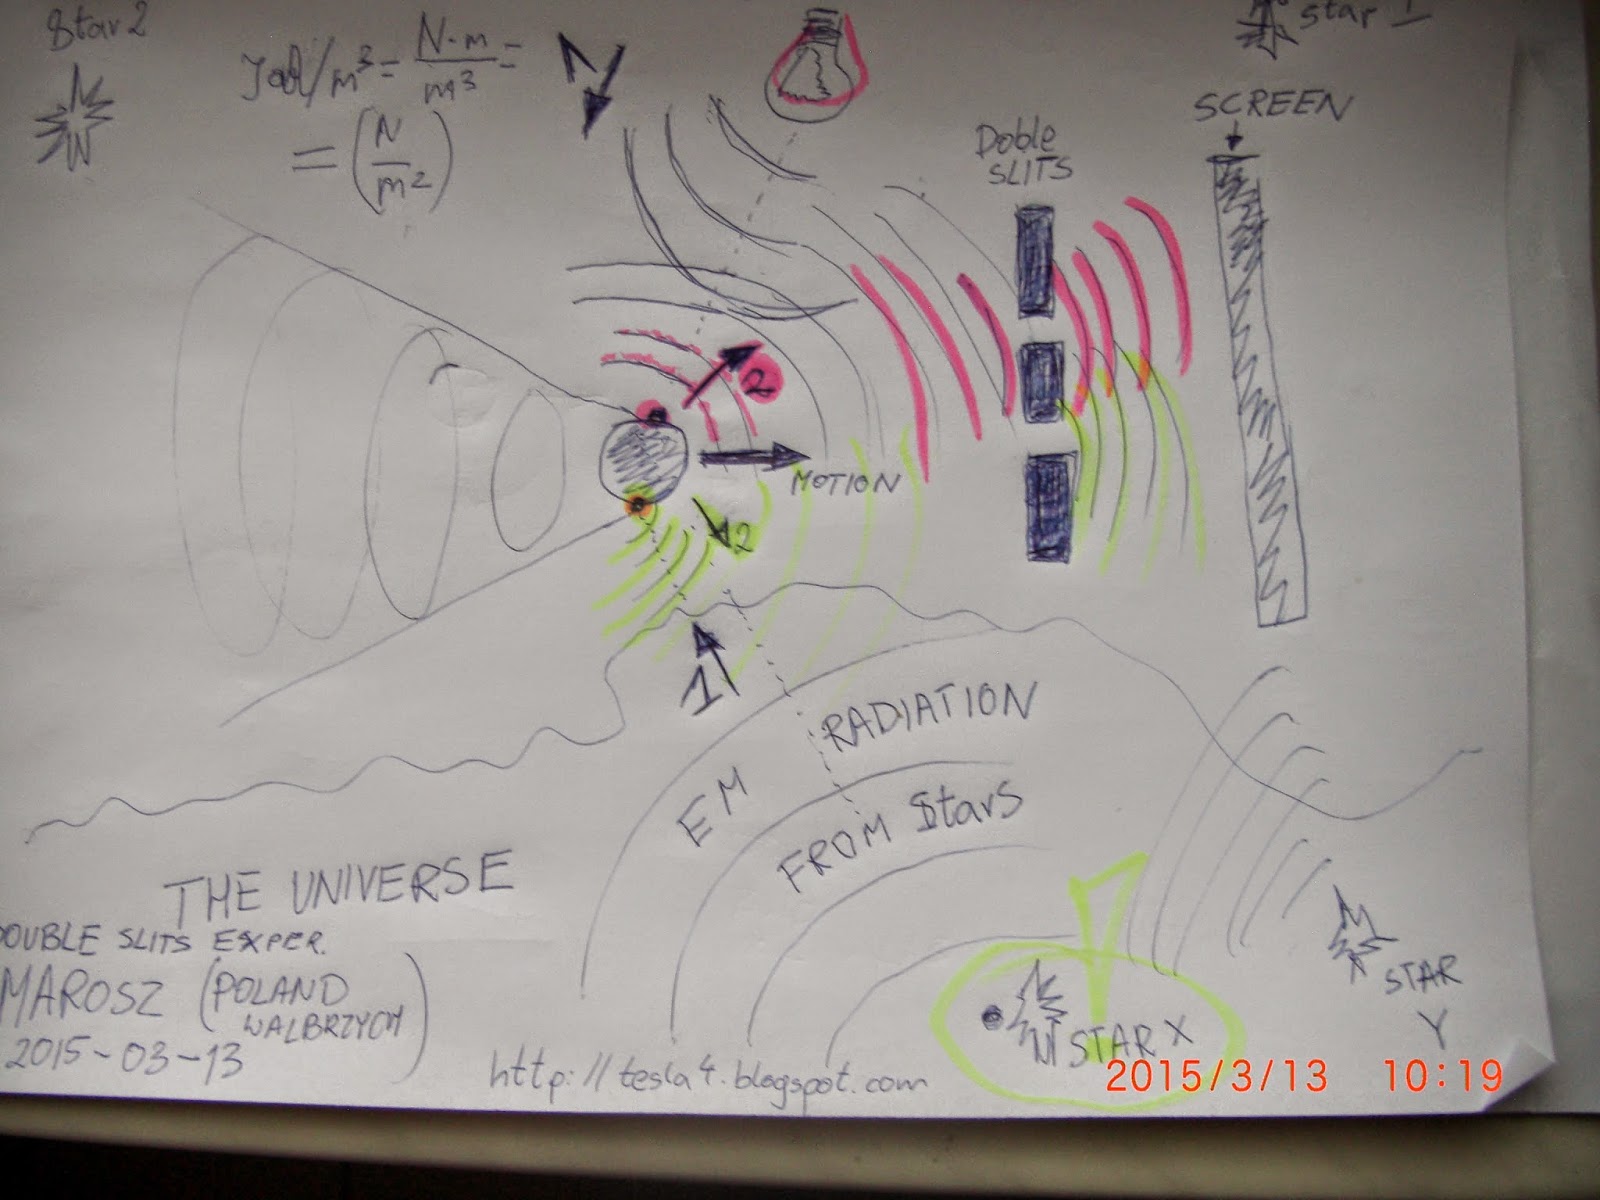 Star 2
Joul/m³ = N·m/m³ =
= (N/m²)
star 1
SCREEN
Doble
SLITS
2
MOTION
2
1
EM RADIATION
FROM Stars
THE UNIVERSE
DOUBLE SLITS EXPER.
MAROSZ (POLAND
WALBRZYCH)
2015-03-13
http://tesla4.blogspot.com
STAR X
STAR
Y
2015/3/13 10:19